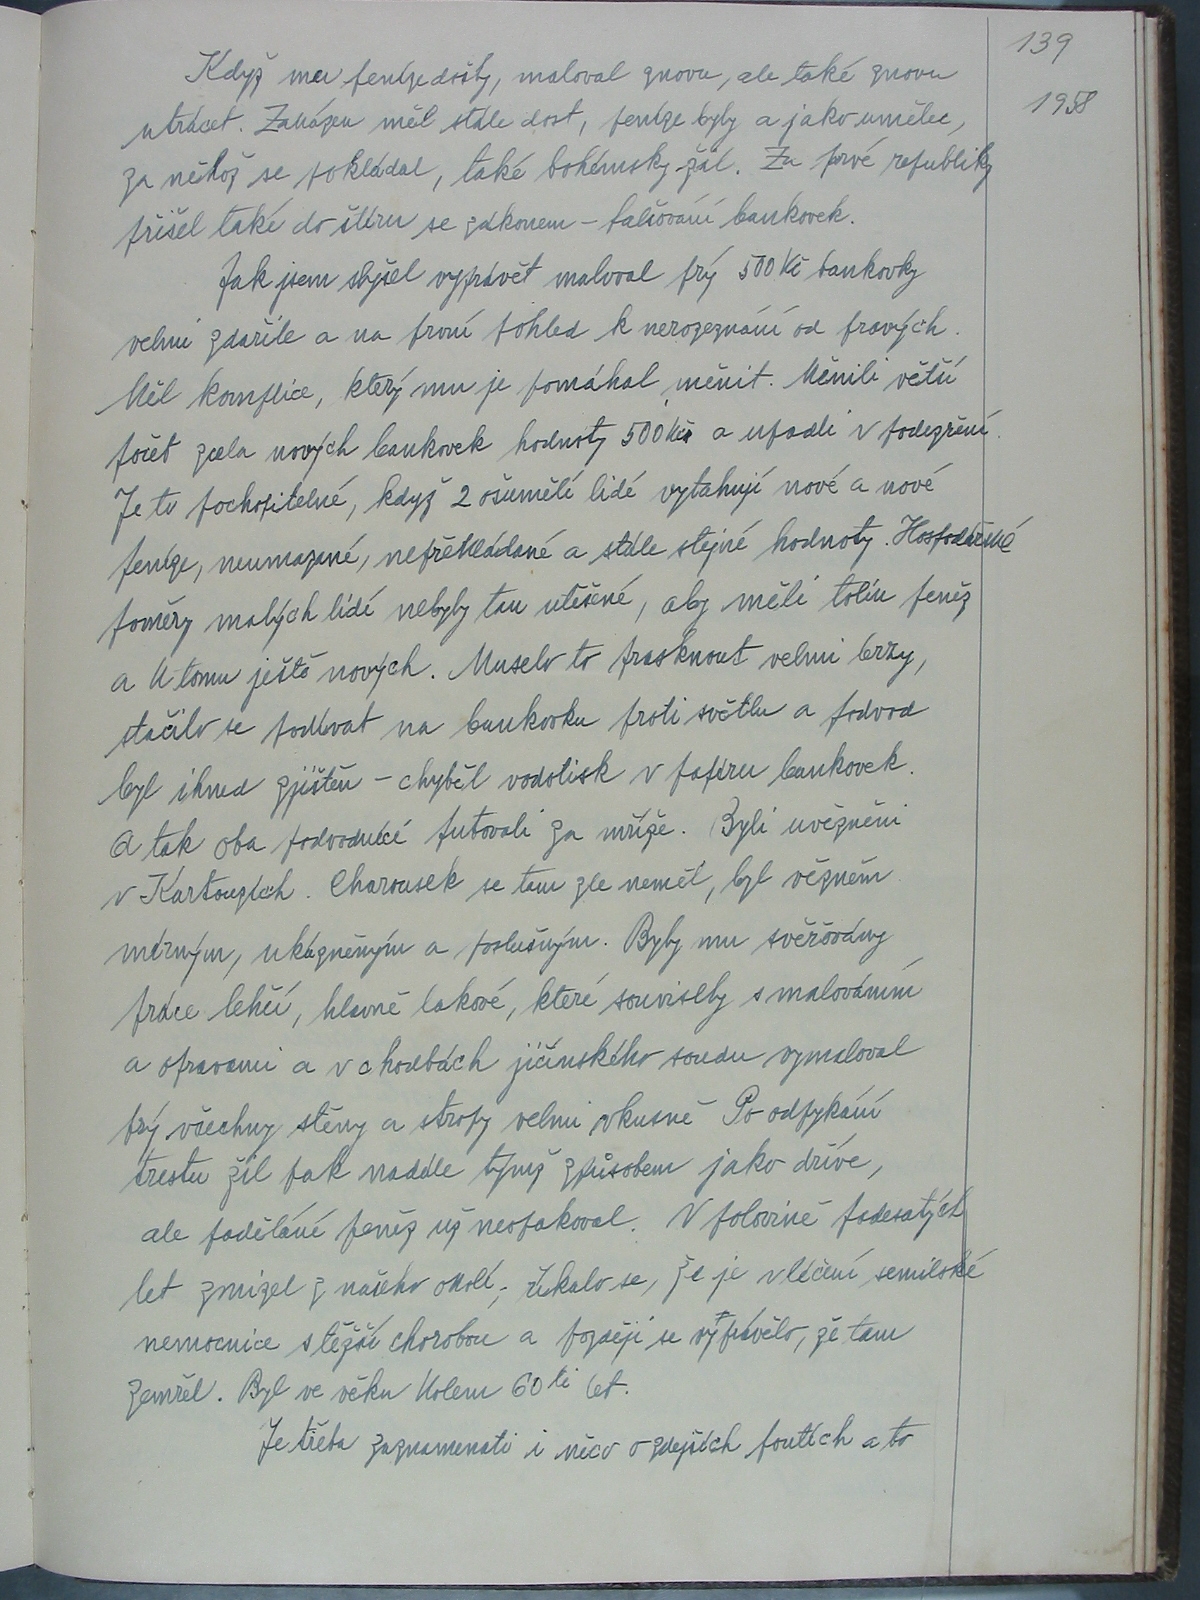 139
1958
Když mu peníze došly, maloval znovu, ale také znovu
utrácet. Zakázek měl stále dost, peníze byly a jako umělec,
za něhož se pokládal, také bohémsky žil. Za prvé republiky
přišel také do štiru se zákonem – falšování bankovek.
Jak jsem slyšel vyprávět maloval prý 500 Kč bankovky
velmi zdařile a na první pohled k nerozeznání od pravých.
Měl komplice, který mu je pomáhal měnit. Měnili větší
počet zcela nových bankovek hodnoty 500 Kčs a upadli v podezření.
Je to pochopitelné, když 2 ošumělí lidé vytahují nové a nové
peníze, neumazané, nepřekládané a stále stejné hodnoty. Hospodářské
poměry malých lidí nebyly tak utěšené, aby měli tolik peněz
a k tomu ještě nových. Muselo to prasknout velmi brzy,
stačilo se podívat na bankovku proti světlu a podvod
byl ihned zjištěn – chyběl vodotisk v papíru bankovek.
A tak oba podvodníci putovali za mříže. Byli uvězněni
v Kartouzích. Charousek se tam zle neměl, byl vězněm
mírným, ukázněným a poslušným. Byly mu svěřovány
práce lehčí, hlavně takové, které souvisely s malováním
a opravami a v chodbách jičínského soudu vymaloval
prý všechny stěny a stropy velmi vkusně Po odpykání
trestu žil pak nadále týmž způsobem jako dříve,
ale padělání peněz už neopakoval. V polovině padesátých
let zmizel z našeho okolí; říkalo se, že je v léčení semilské
nemocnice s těžší chorobou a později se vyprávělo, že tam
zemřel. Byl ve věku kolem 60 ti let.
Je třeba zaznamenati i něco o zdejších poutích a to